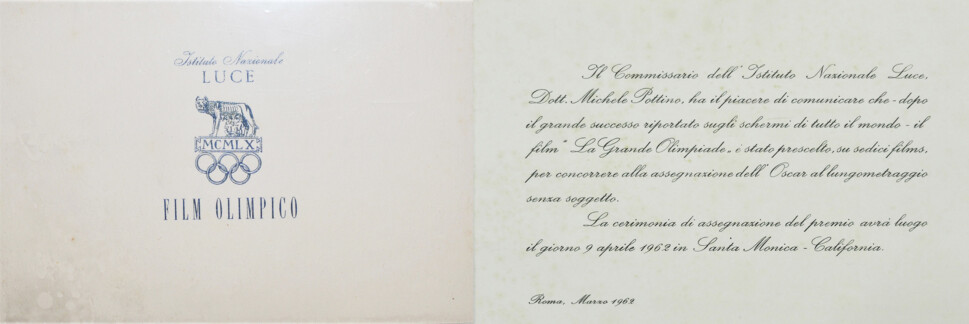 Istituto Nazionale
LUCE
MCMLX
FILM OLIMPICO
Il Commissario dell'Istituto Nazionale Luce,
Dott. Michele Pottino, ha il piacere di comunicare che - dopo
il grande successo riportato sugli schermi di tutto il mondo - il
film "La Grande Olimpiade„ è stato prescelto, su sedici films,
per concorrere alla assegnazione dell'Oscar al lungometraggio
senza soggetto.
La cerimonia di assegnazione del premio avrà luogo
il giorno 9 aprile 1962 in Santa Monica - California.
Roma, Marzo 1962